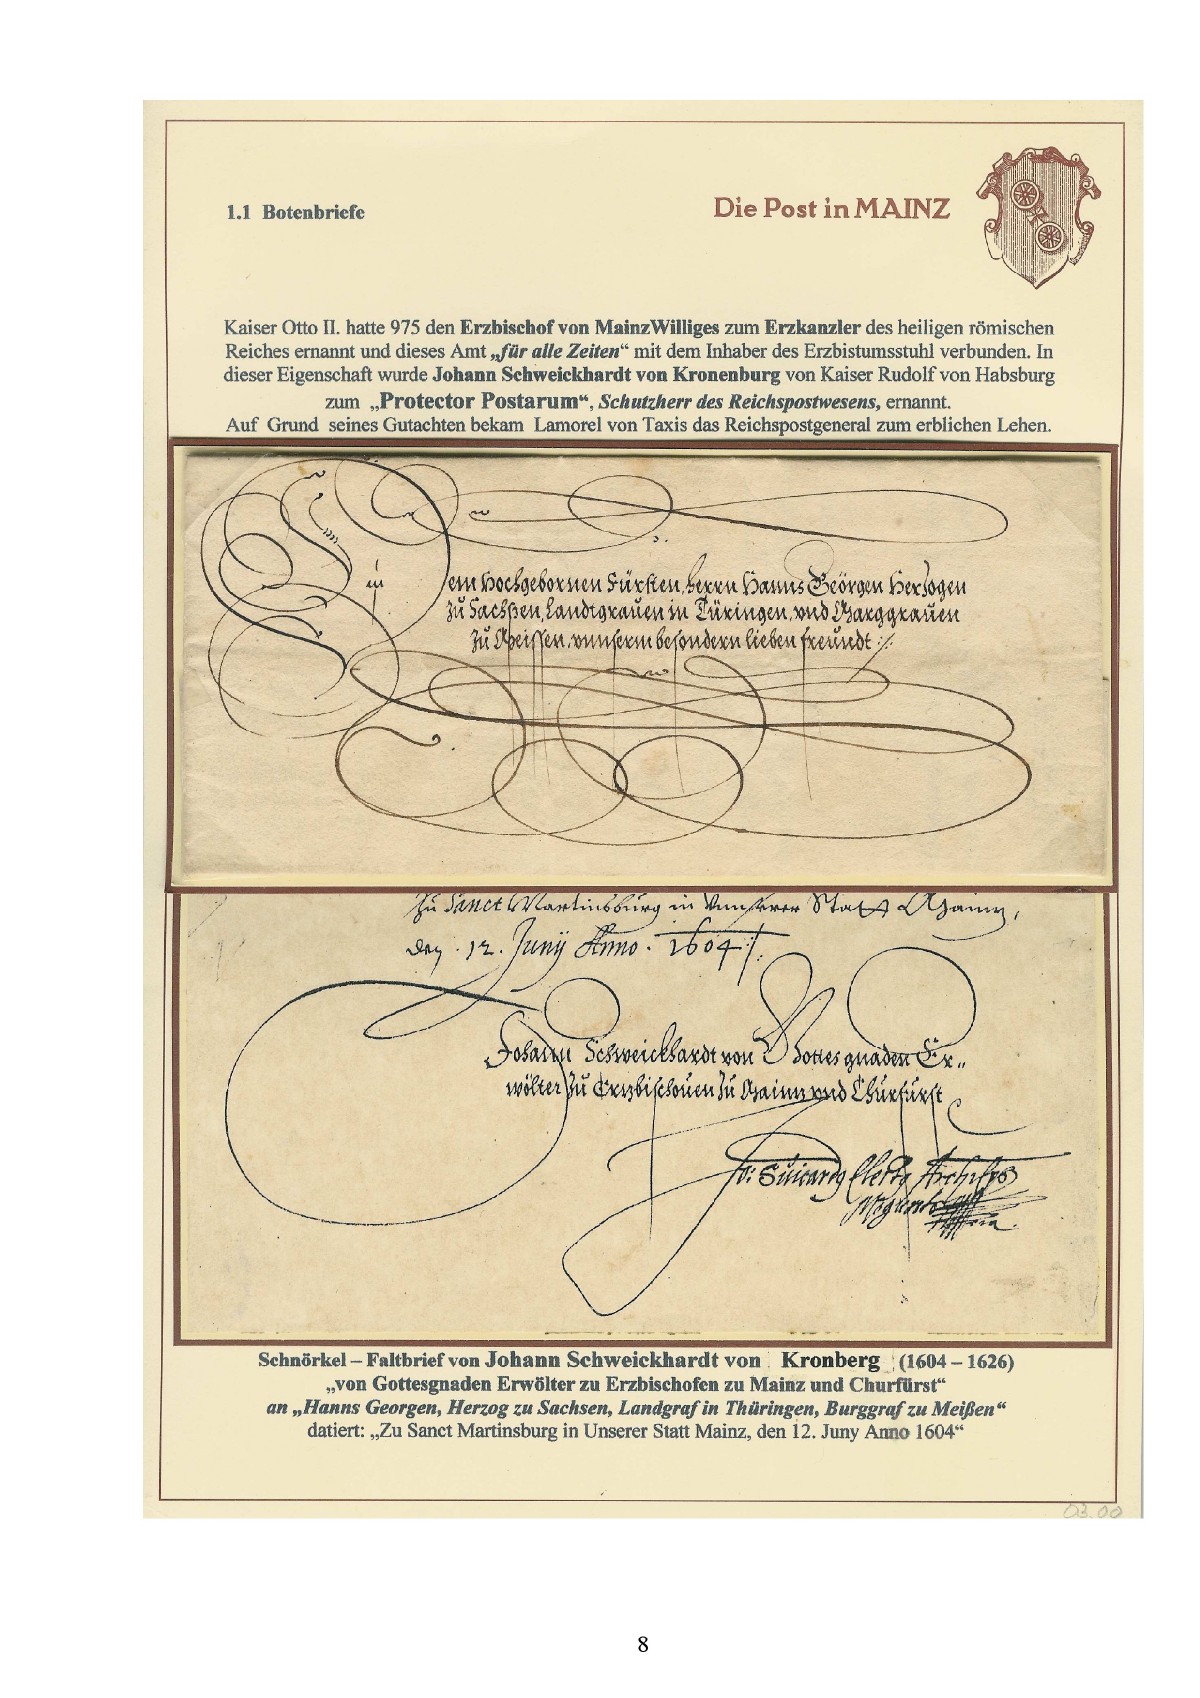 1.1 Botenbriefe
Die Post in MAINZ
Kaiser Otto II. hatte 975 den Erzbischof von MainzWilliges zum Erzkanzler des heiligen römischen
Reiches ernannt und dieses Amt „für alle Zeiten“ mit dem Inhaber des Erzbistumsstuhl verbunden. In
dieser Eigenschaft wurde Johann Schweickhardt von Kronenburg von Kaiser Rudolf von Habsburg
zum „Protector Postarum“, Schutzherr des Reichspostwesens, ernannt.
Auf Grund seines Gutachten bekam Lamorel von Taxis das Reichspostgeneral zum erblichen Lehen.
Dem Hochgebornen Fürsten, herrn Hanns Geörgen Hertzogen
zu Sachßen, Landtgrauen in Türingen, vnd Marggrauen
zu Meissen, vnnserm besondern lieben freundt
Zu Sanct Martinsburg in Vnnserer Statt Maintz,
den . 12. Junÿ Anno . 1604
Johann Schweickhardt von Gottes gnaden Er-
wölter zu Ertzbischouen zu Maintz vnd Churfürst
Schnörkel – Faltbrief von Johann Schweickhardt von Kronberg (1604 – 1626)
„von Gottesgnaden Erwölter zu Erzbischofen zu Mainz und Churfürst“
an „Hanns Georgen, Herzog zu Sachsen, Landgraf in Thüringen, Burggraf zu Meißen“
datiert: „Zu Sanct Martinsburg in Unserer Statt Mainz, den 12. Juny Anno 1604“
03.00
8